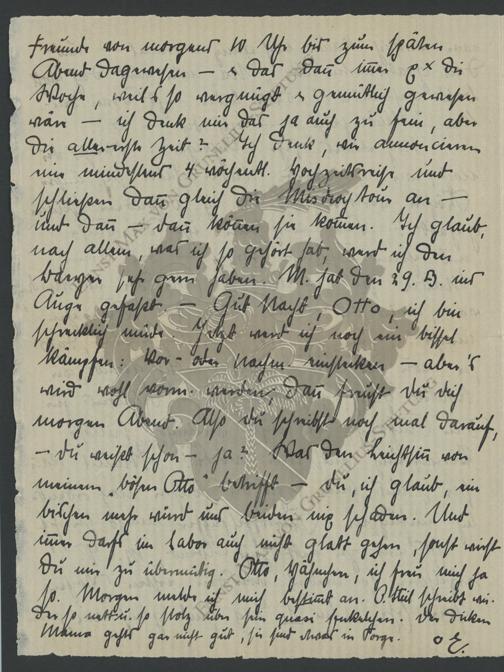 Freunde von morgens 10 Uhr bis zum späten
Abend dagewesen — & das dan̄ im̄er p x die
Woche, weil's so vergnügt & gemütlich gewesen
wäre — ich denk mir das ja auch zu fein, aber
die allererste Zeit? Ich denk, wir annoncieren
eine mindestens 4 wöchentl. Hochzeitsreise und
schließen dan̄ gleich die Misdroytour an —
und dan̄ — dan̄ kön̄en sie kommen. Ich glaub,
nach allem was ich so gehört hab, werd ich den
sehr gern haben. M. hat den 29. ins
Auge gefaßt — Gut Nacht, Otto, ich bin
schrecklich müde. Jetzt werd ich noch ein bissel
kämpfen: Vor- oder Nachm. einstecken — aber's
wird wohl vorm. werden, dan̄ freust Du Dich
morgen Abend. Also Du schreibst noch mal darauf,
— Du weißt schon — ja? Was den Leichtsin̄ von
meinem "bösen Otto" betrifft — Du, ich glaub, ein
bischen mehr wird uns beiden nix schaden. Und
im̄er darfs im Labor auch nicht glatt gehen, sonst wirst
Du mir zu übermütig. Otto, ich freu mich ja
so. Morgen meld ich mich bestim̄t an. O. Emil schreibt mir.
Der so nett u. so stolz über sein quasi Enkelchen. Der dicken
Mama gehts gar nicht gut, sie sind etwas in Sorge.
ERNST MAX VON GRUNELIUS-STIFTUNG